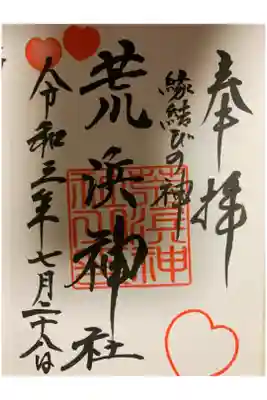 奉拝
縁結びの神
荒浜神社
令和三年七月二十八日